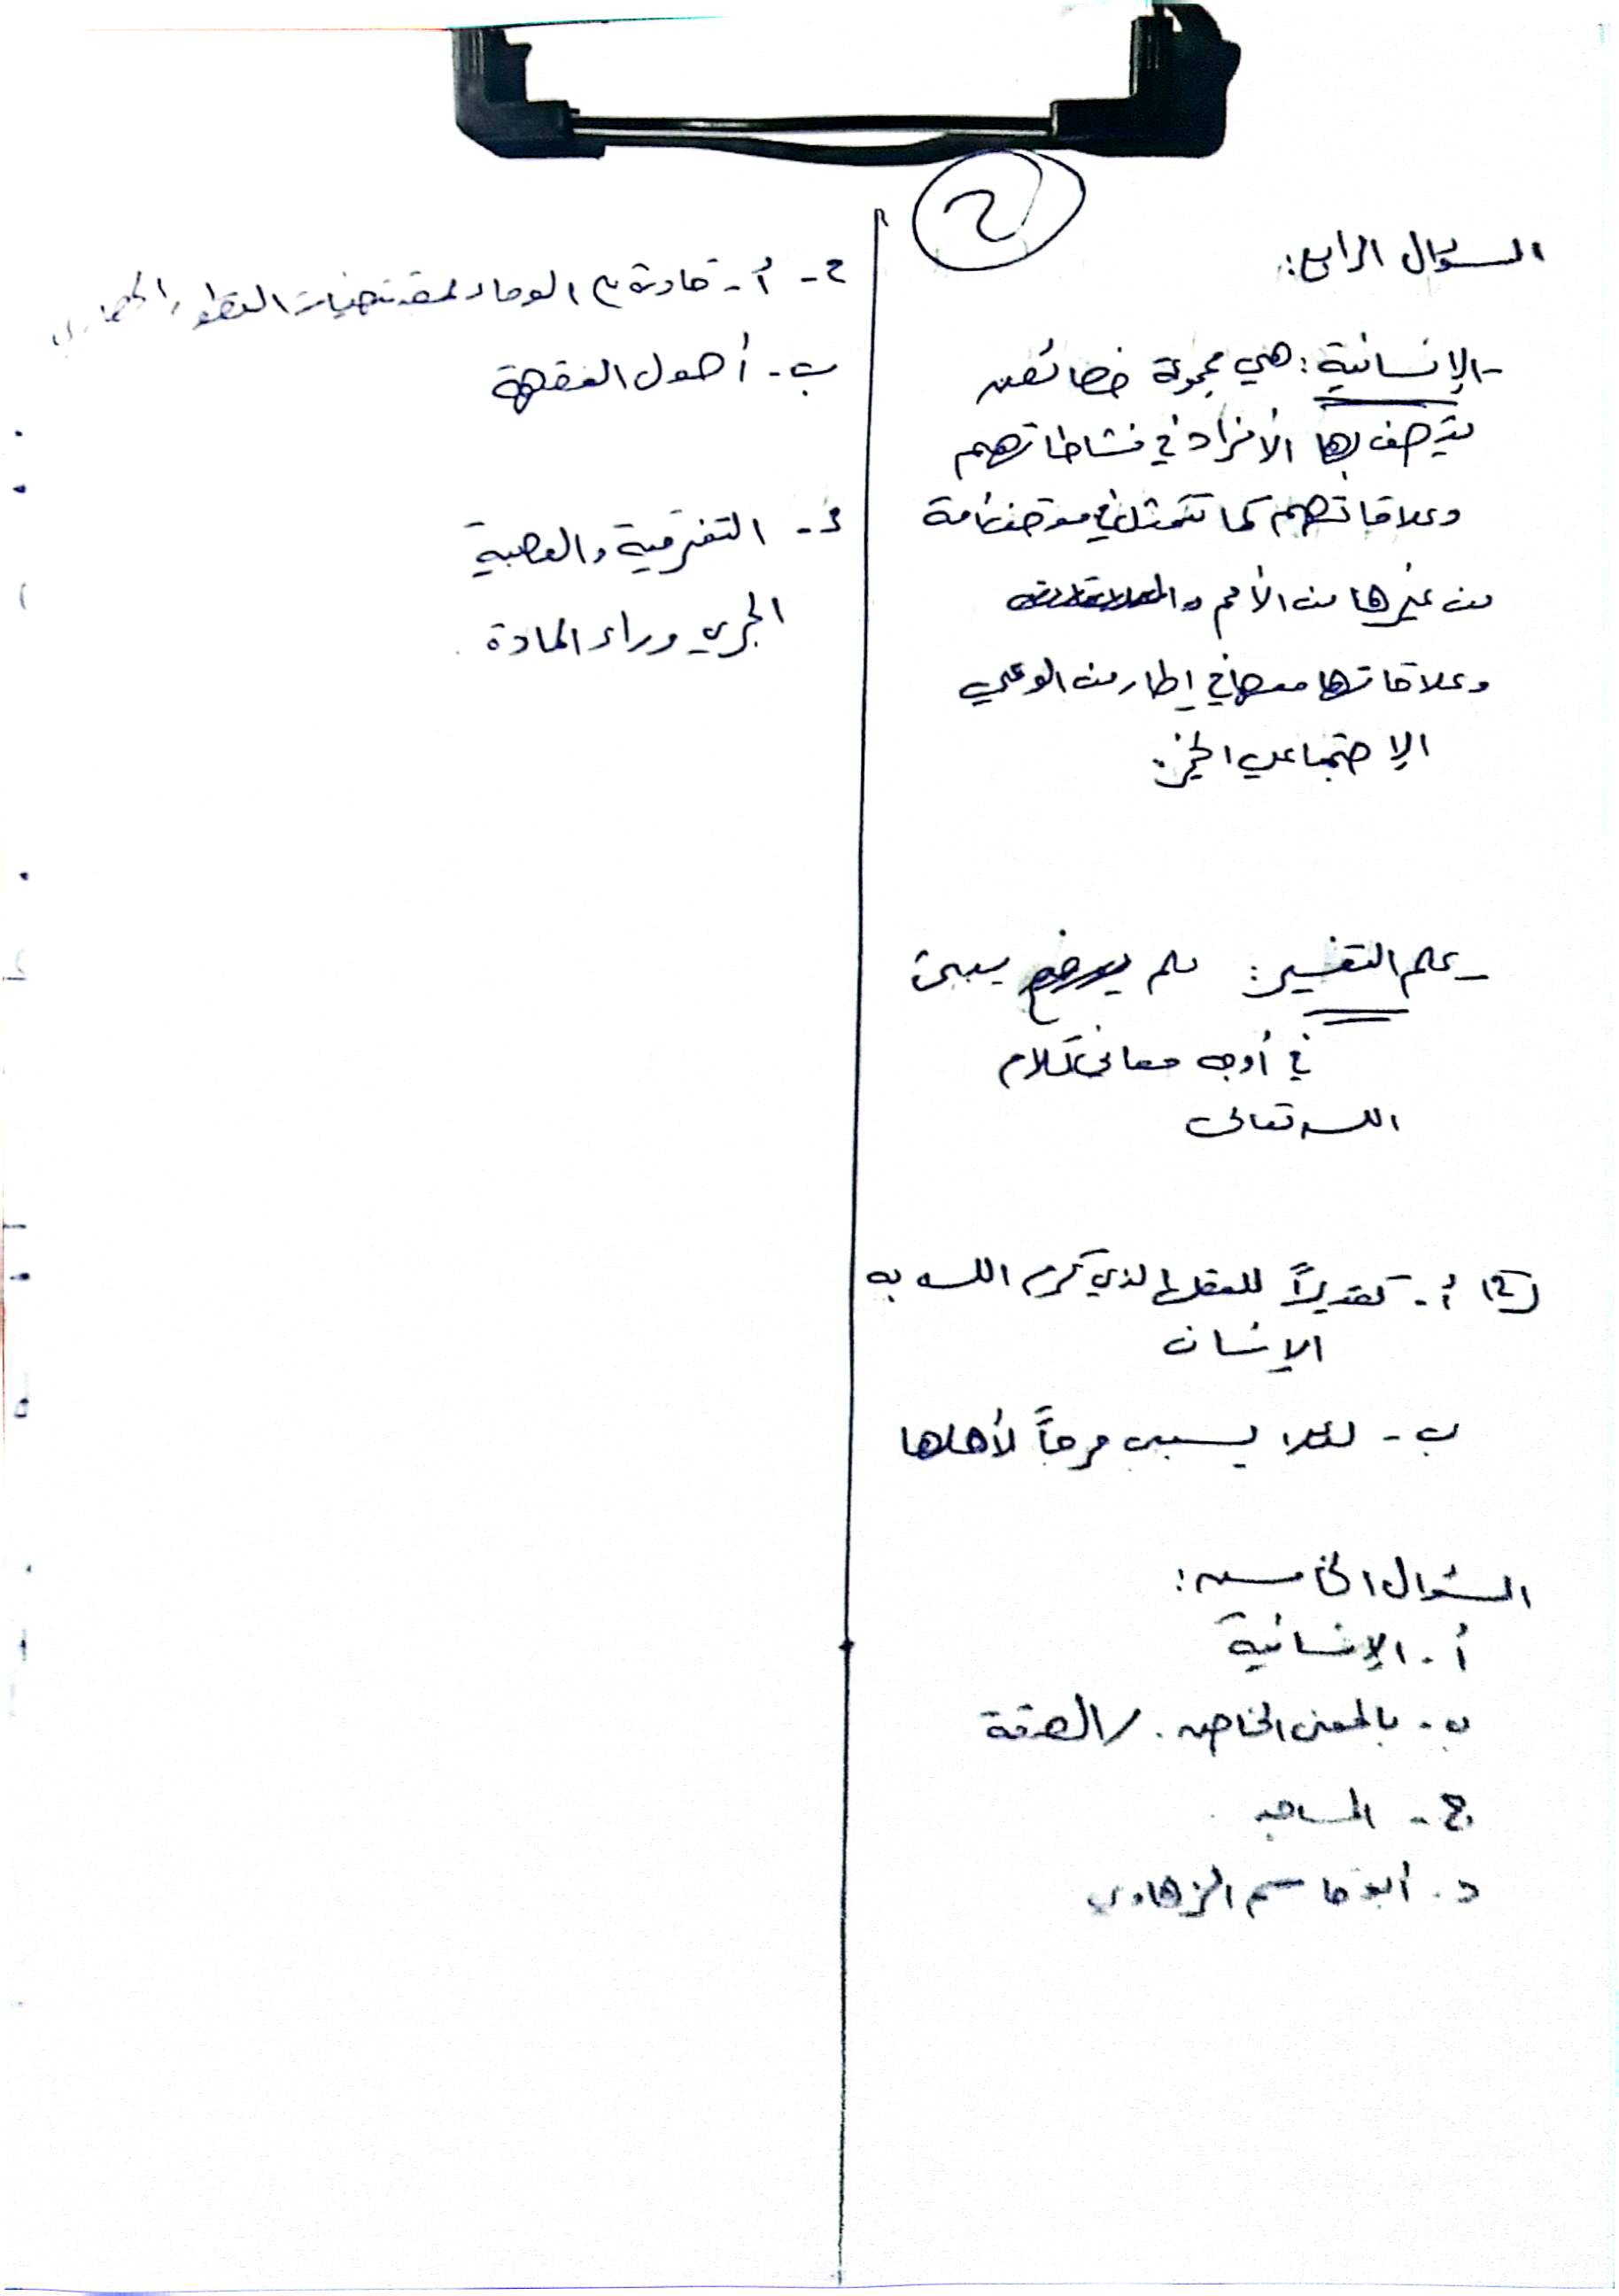 ٢
السؤال الرابع:
- الإنسانية: هي مجموعة خصائص
يتصف بها الأفراد في نشاطاتهم
وعلاقاتهم كما تتمثل في موقف أمة
من غيرها من الأمم
وعلاقاتها معها في إطار من الوعي
الإجتماعي الخير.
- علم التفسير: علم يبحث
في أوجه معاني كلام
الله تعالى
(٢) أ - تقديراً للعقل الذي كرم الله به
الإنسان
ب - لئلا يسبب حرجاً لأهلها
السؤال الخامس:
أ - الإنسانية
ب - بالمعنى الخاص. / الصدقة
ج - المساجد
د - أبو قاسم الزهاوي
٢ - أ -
ب - أصول الفقه
٣ - التفرقية والعصبية
الجري وراء المادة.